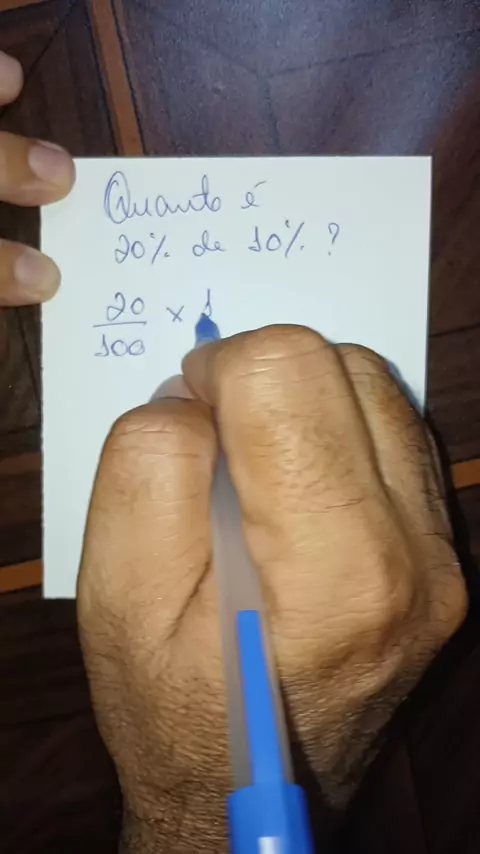 Quanto é
20% de 10% ?
20/100 × 1